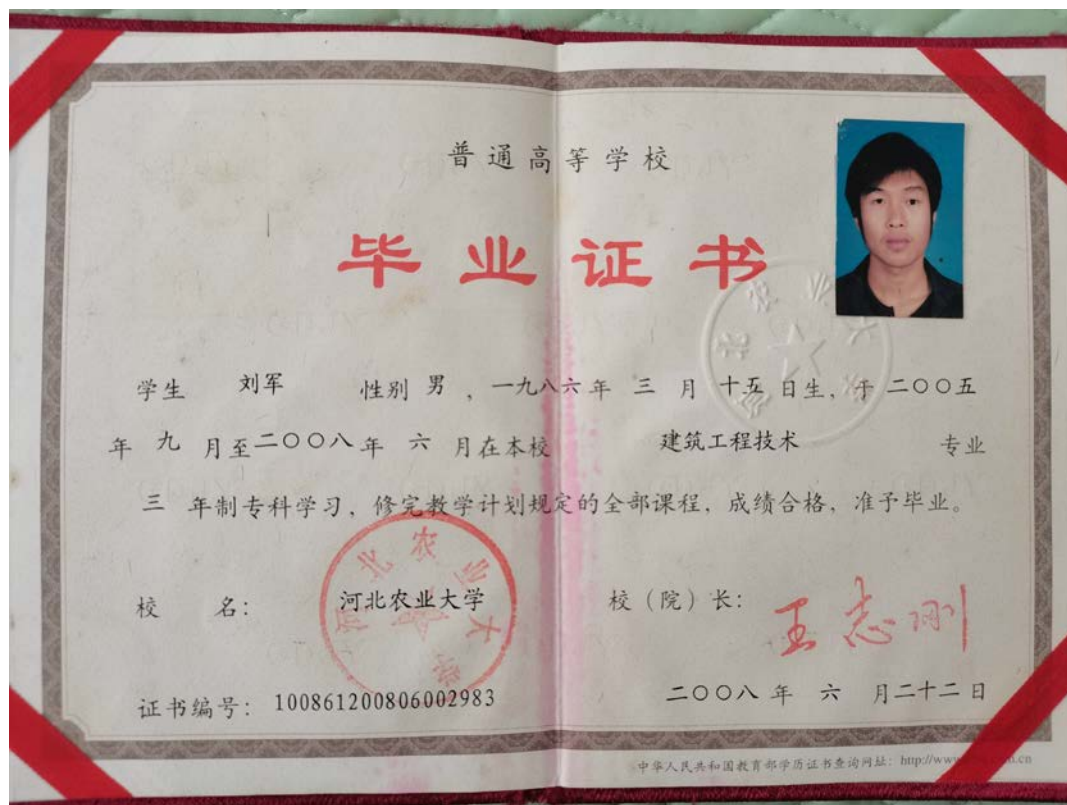 普通高等学校
毕业证书
学生 刘军 性别 男 ，一九八六年 三 月 十五 日生，于 二〇〇五
年 九 月至 二〇〇八 年 六 月在本校 建筑工程技术 专业
三 年制专科学习，修完教学计划规定的全部课程，成绩合格，准予毕业。
校 名： 河北农业大学
校（院）长： 王志刚
证书编号： 100861200806002983
二〇〇八 年 六 月二十二日
中华人民共和国教育部学历证书查询网址：http://www
河北农业大学
河北农业大学